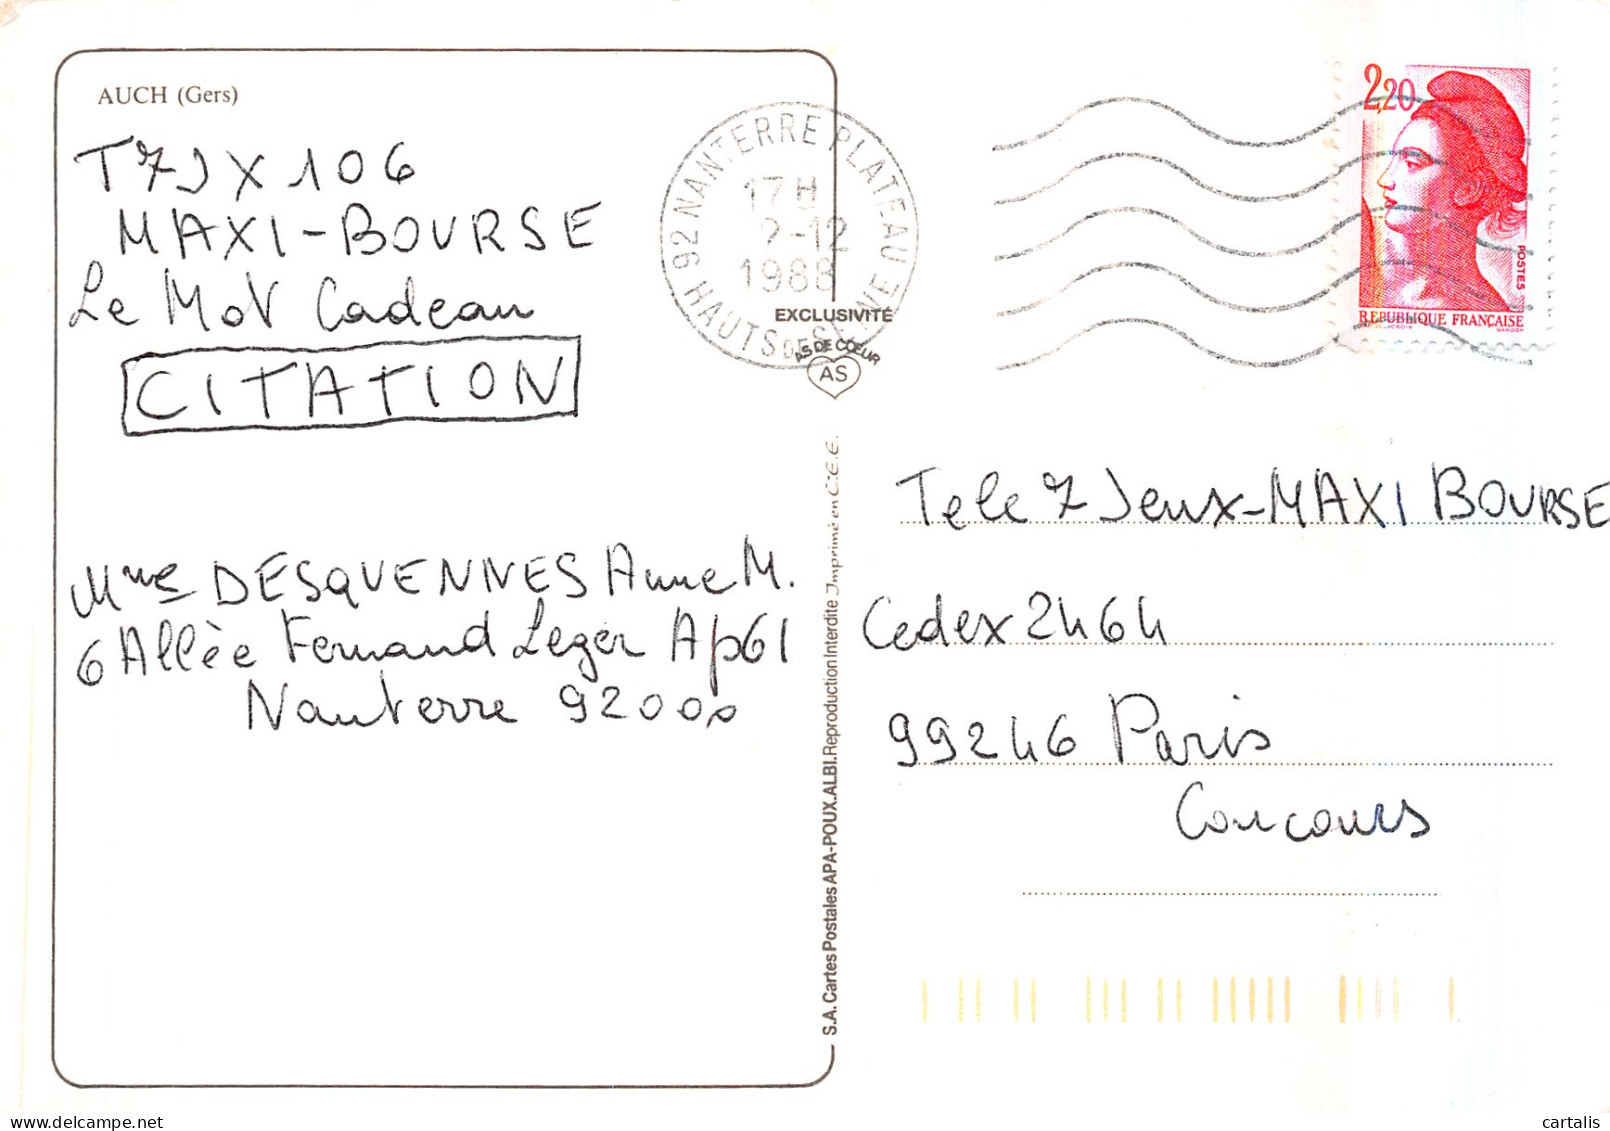 AUCH (Gers)
T7JX106
MAXI-BOURSE
Le Mot Cadeau
CITATION
Mme DESQUENNES Anne M.
6 Allée Fernand Leger Ap61
Nanterre 92000
92 NANTERRE PLATEAU
17 H
2-12
1988
HAUTS DE SEINE
EXCLUSIVITÉ
AS DE COEUR
AS
S.A. Cartes Postales APA-POUX.ALBI. Reproduction Interdite Imprimé en C.E.E.
2,20
POSTES
REPUBLIQUE FRANÇAISE
GANDON
Tele 7 Jeux-MAXI BOURSE
Cedex 2464
99246 Paris
Concours
cartalis
www.delcampe.net